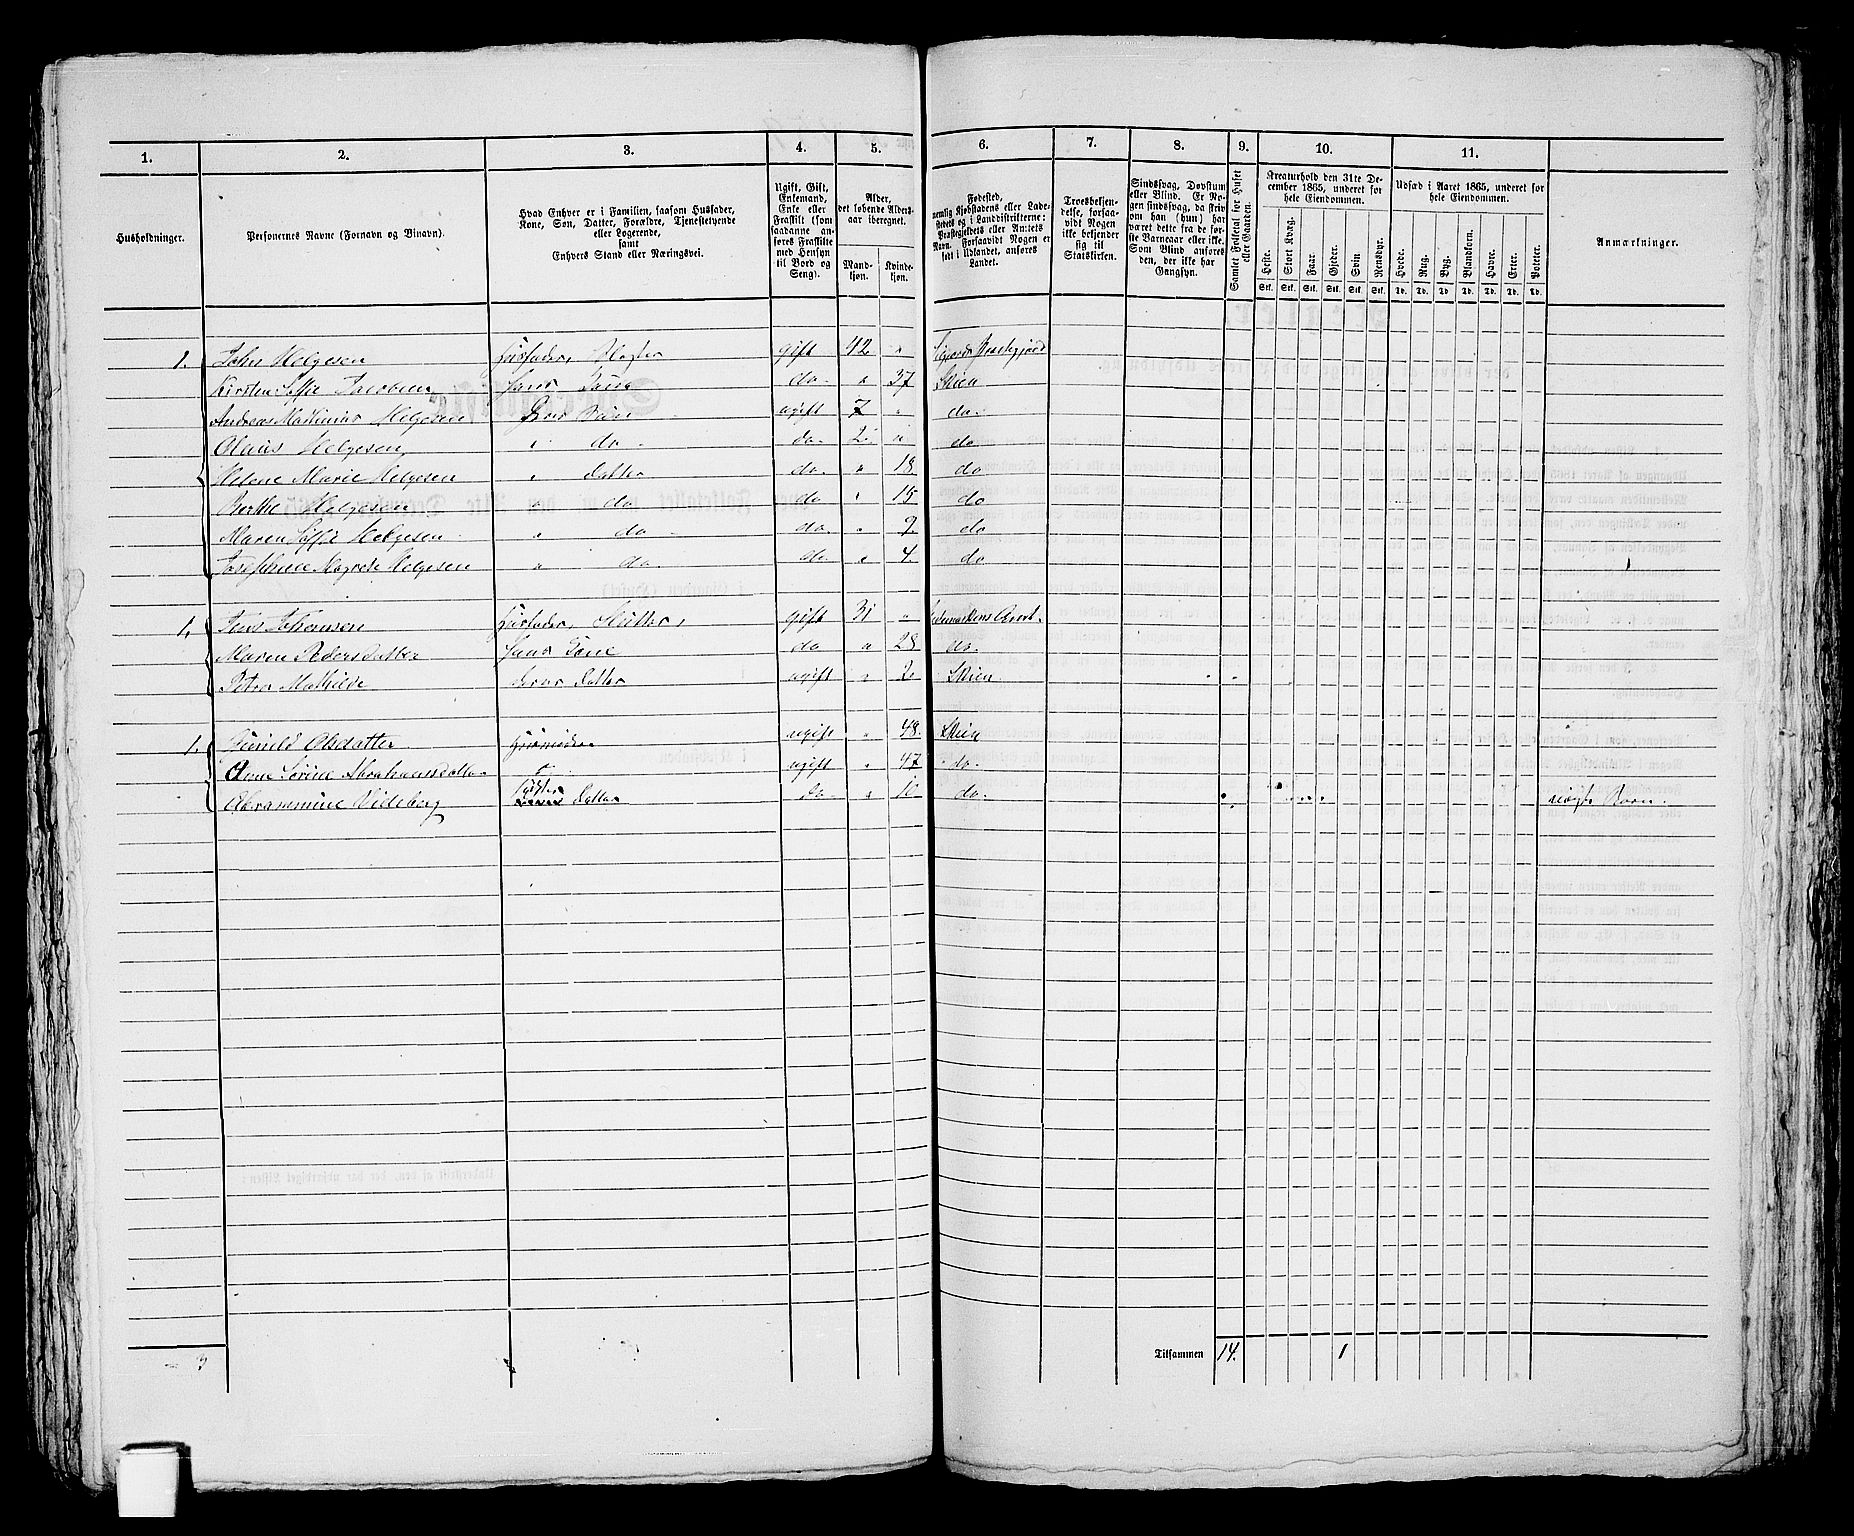 1. 2. 3. 4. 5. 6. 7. 8. 9. 10. 11.
Husholdninger.
Personernes Navne (Fornavn og Binavn).
Hvad Enhver er i Familien, saasom Husfader,
Kone, Søn, Datter, Forældre, Tjenestetyende
eller Logerende,
samt
Enhvers Stand eller Næringsvei.
Ugift, Gift,
Enkemand,
Enke eller
Fraskilt (som
saadanne an-
føres Fraskilte
med Hensyn
til Bord og
Seng).
Alder,
det løbende Alders-
aar iberegnet.
Mand-
kjøn.
Kvinde-
kjøn.
Fødested,
nemlig Kjøbstadens eller Lade-
stedets og i Landdistrikterne:
Præstegjeldets eller Anexets
Navn. Forsaavidt Nogen er
født i Udlandet, anføres
Landet.
Troesbekjen-
delse, forsaa-
vidt Nogen
ikke bekjender
sig til
Statskirken.
Sindssvag, Døvstum
eller Blind. Er No-
gen sindssvag, da skri-
ves om han (hun) har
været dette fra de før-
ste Barneaar eller ikke.
Som Blind anføres
den, der ikke har
Gangsyn.
Samlet Folketal for Huset
eller Gaarden.
Kreaturhold den 31te De-
cember 1865, underet for
hele Eiendommen.
Heste. Stort Kvæg. Faar. Gjeder. Svin. Rensdyr.
Stk. Stk. Stk. Stk. Stk. Stk.
Udsæd i Aaret 1865, underet for
hele Eiendommen.
Hvede. Rug. Byg. Blandkorn. Havre. Erter. Poteter.
Td. Td. Td. Td. Td. Td. Td.
Anmærkninger.
1. John Helgesen Husfader, gift 42 "
Kirsten Sofie Jacobsen hans Kone do " 37 Skien
Andreas Mathinius Helgesen ugift 7 " do
Olaus Helgesen " do do 2 " do
Helene Marie Helgesen " Datter do " 18 do
Berthe Helgesen " do do " 15 do
Maren Soffie Helgesen " do do " 9 do
Josephine Magrete Helgesen " do do " 4 do
1. Jens Johansen Husfader, gift 31 "
Maren Pedersdatter hans Kone do " 28 do
Petra Mathilde deres Datter ugift " 2 Skien
1. Gunild Olsdatter Husmoder ugift " 48 Skien
Anne Sørine Abrahamsdatter ugift " 47 do
Abrammine Videberg Datter do " 10 do uægte Barn
3
Tilsammen 14. 1